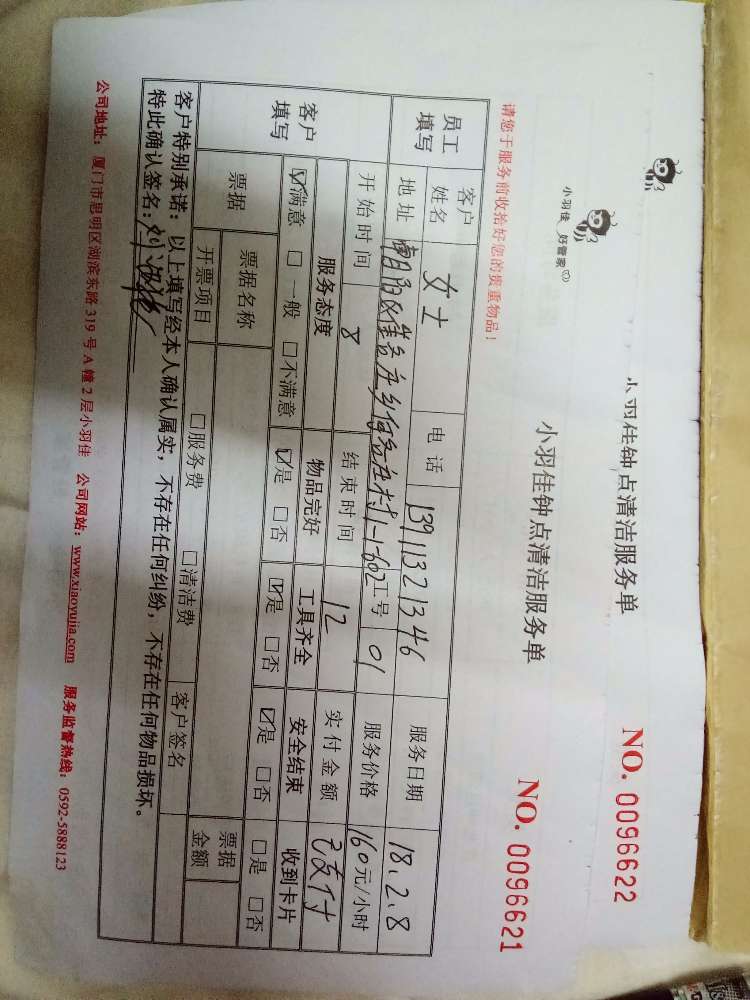 小羽佳钟点清洁服务单
NO. 0096622
小羽佳 好管家
小羽佳钟点清洁服务单
NO. 0096621
请您于服务前收拾好您的贵重物品！
员工填写 客户姓名 女士 电话 13911321346 服务日期 18.2.8
地址 工号 01 服务价格 160元/小时
客户填写 开始时间 8 结束时间 12 实付金额 已支付
服务态度 物品完好 工具齐全 安全结束 收到卡片
☑满意 □一般 □不满意 ☑是 □否 ☑是 □否 ☑是 □否 □是 □否
票据 票据名称 票据金额
开票项目 □服务费 □清洁费 客户签名
客户特别承诺：以上填写经本人确认属实，不存在任何纠纷，不存在任何物品损坏。
特此确认签名：
公司地址：厦门市思明区湖滨东路 319 号 A 幢 2 层小羽佳 公司网站：www.xiaoyujia.com 服务监督热线：0592-5888123